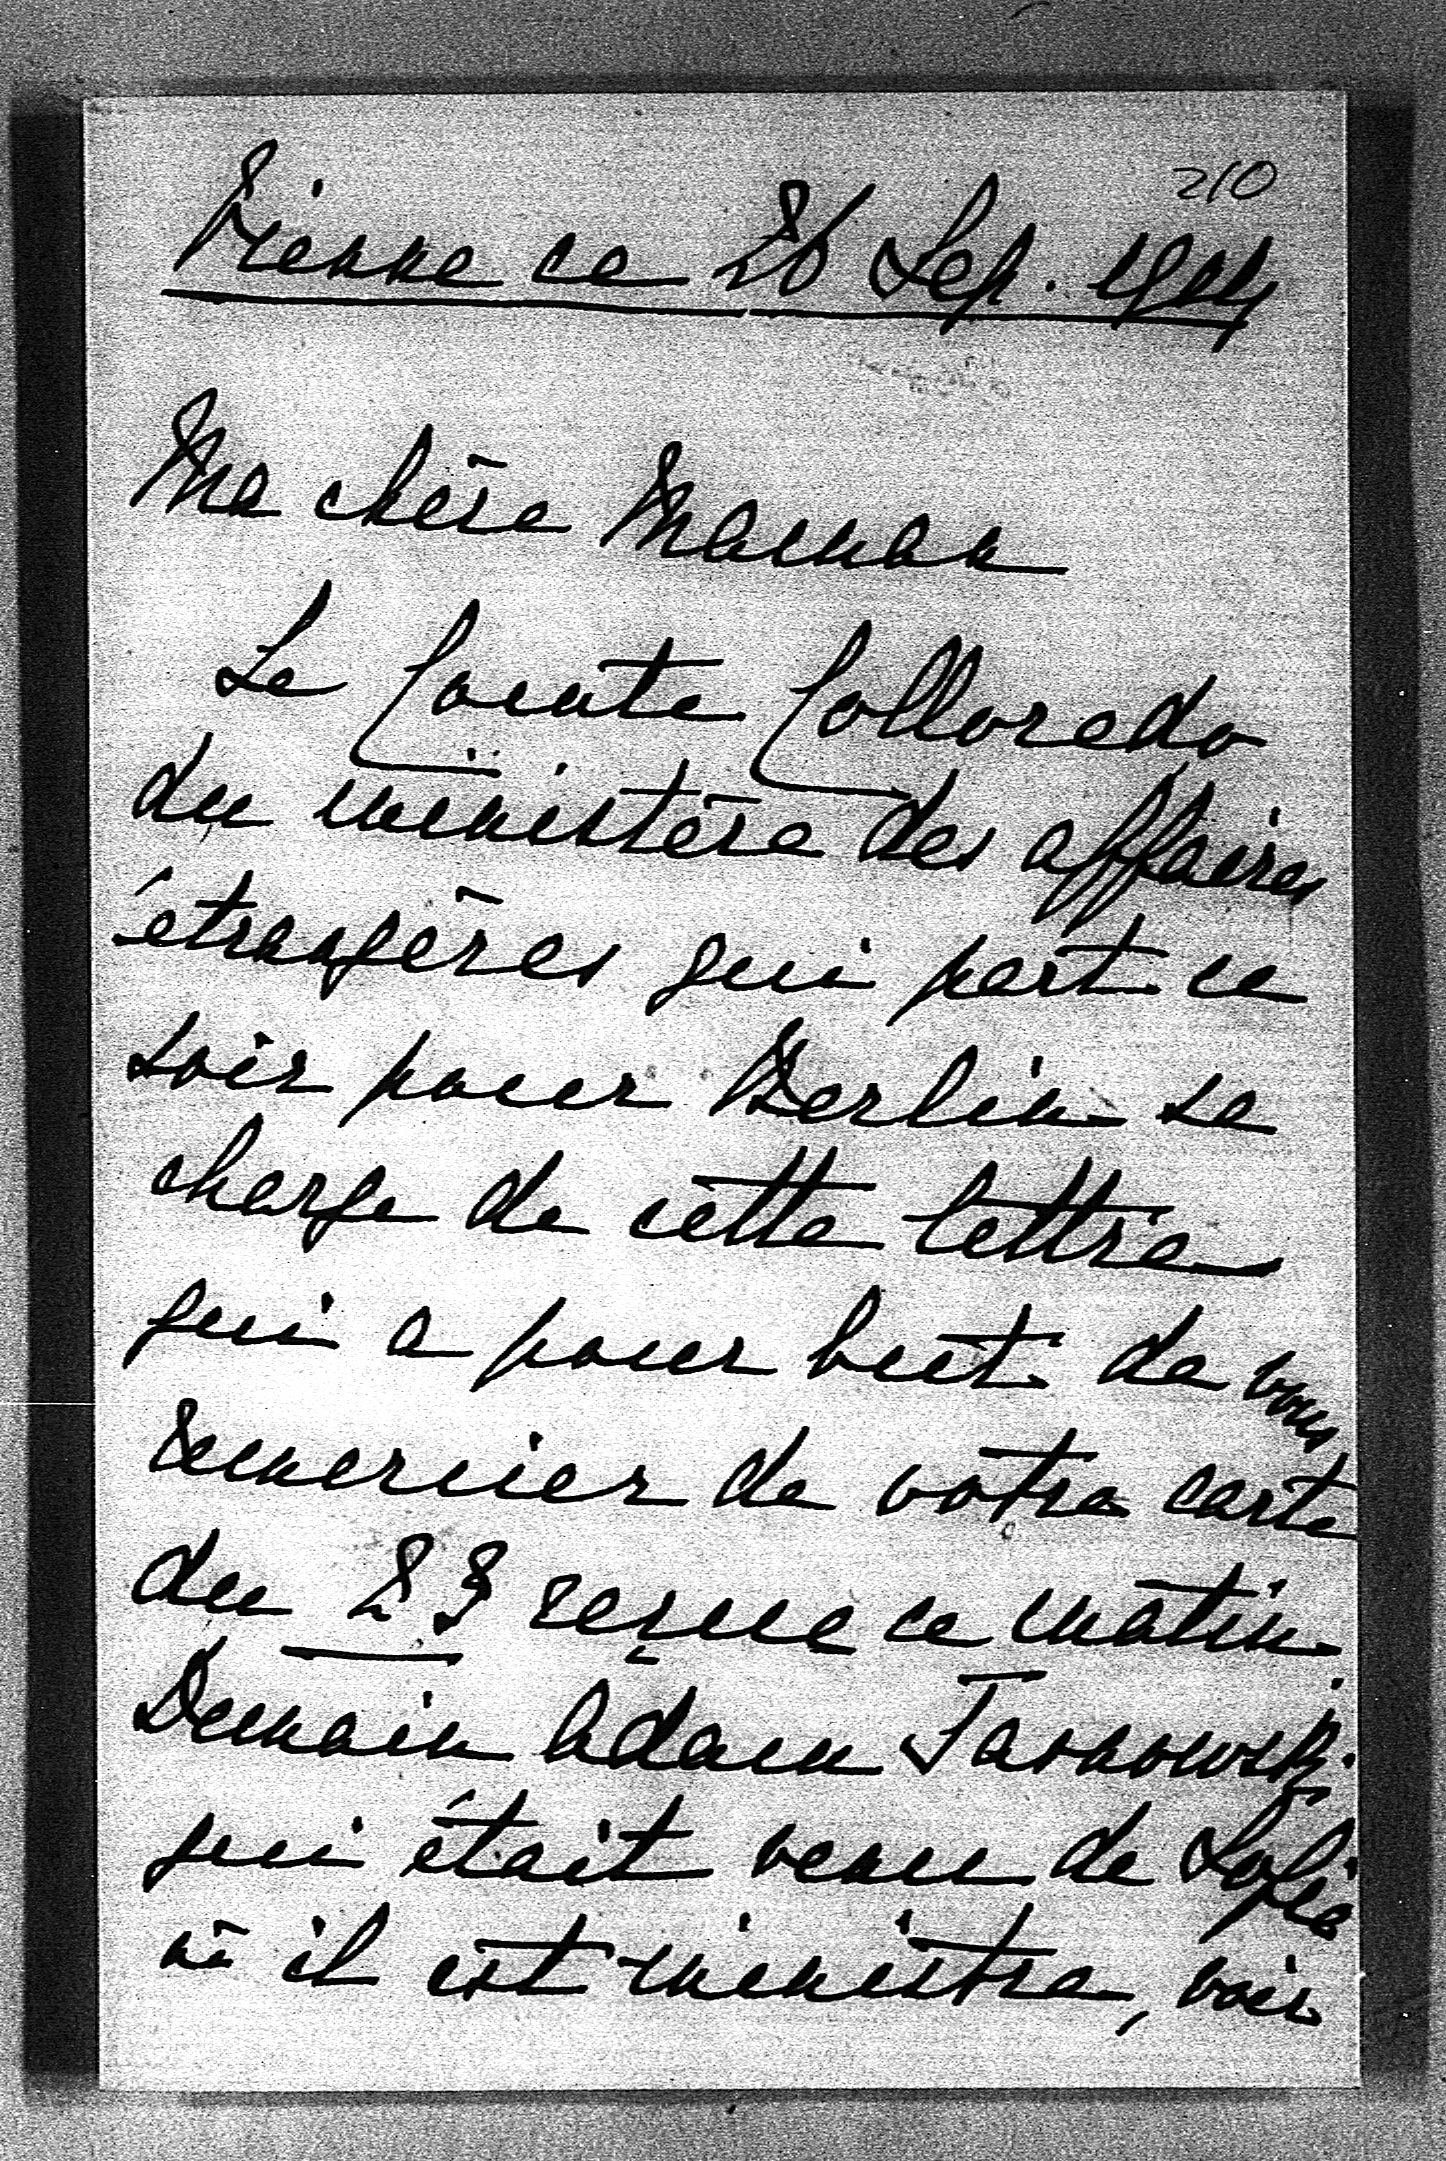 210
Vienne ce 26 Sep. 1914
Ma chère Maman
Le Comte Colloredo
du ministère des affaires
étrangères qui part ce
soir pour Berlin se
charge de cette lettre
qui a pour but de vous
remercier de votre carte
du 23 reçue ce matin.
Demain Adam Tarnowski
qui était venu de Sofia
où il est ministre, voir